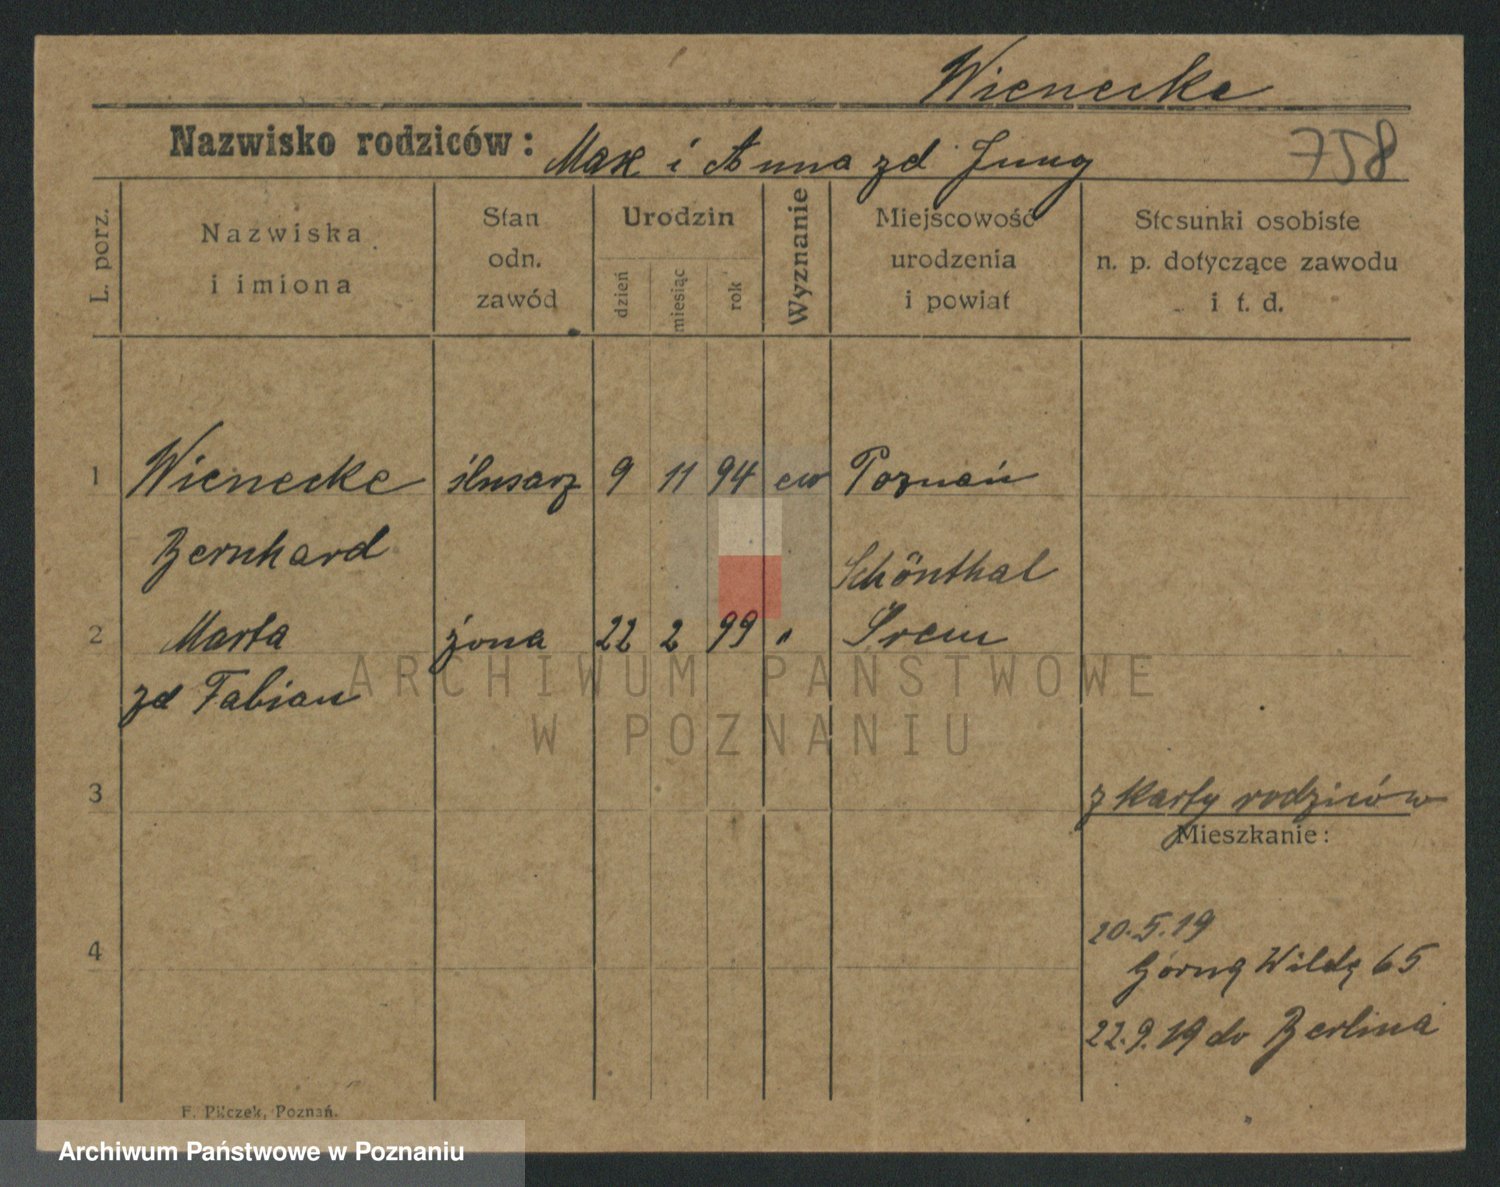 Wienecke
Nazwisko rodziców: Max i Anna zd Jung 758
L. porz.
Nazwiska i imiona
Stan odn. zawód
Urodzin
dzień miesiąc rok
Wyznanie
Miejscowość urodzenia i powiat
Stosunki osobiste n. p. dotyczące zawodu i t. d.
1 Wienecke ślusarz 9 11 94 ew Poznań
Bernhard
Schönthal
2 Marta żona 22 2 99 " Śrem
zd Fabian
ARCHIWUM PAŃSTWOWE
W POZNANIU
3
z karty rodziców
Mieszkanie:
4
20.5.19
Górną Wildę 65
22.9.19 do Berlina
F. Pilczek, Poznań.
Archiwum Państwowe w Poznaniu